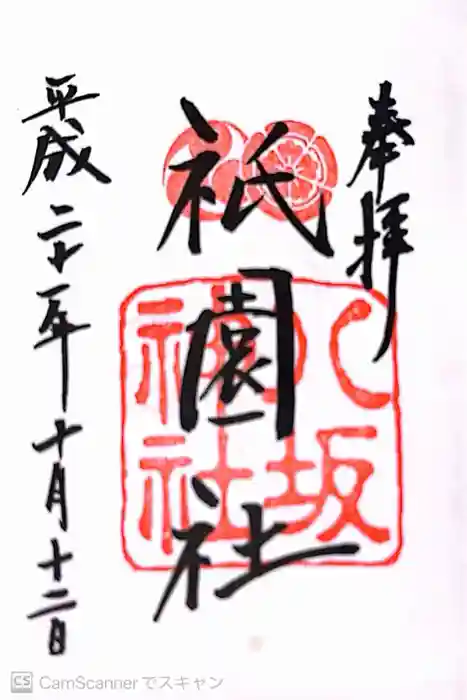 奉拝
祇園社
八坂神社
平成二十一年十月十二日
CS CamScannerでスキャン